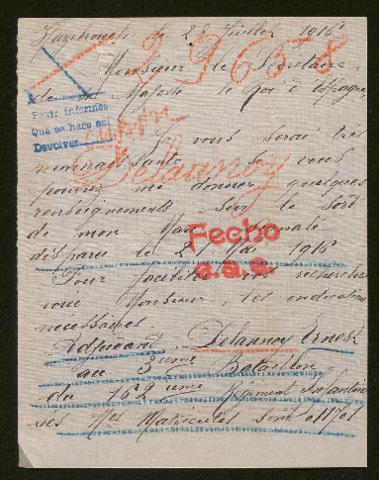 Hazebrouck le 28 Juillet 1916
29658
Monsieur le Secrétaire
de sa Majesté le Roi d'Espagne,
Pedir informes
Que se hace así
Devolver
Je vous serai très
reconnaissante de vous
Delaunoy
pouvez me donner quelques
renseignements sur le sort
de mon Mari
disparu le 21 Mai 1916
Fecho
Pour faciliter vos recherches
voici Monsieur, les indications
nécessaires
Adjudant Delannoy Ernest
au 3ème Bataillon
du 162ème Régiment Infanterie
ses Nos Matricules sont